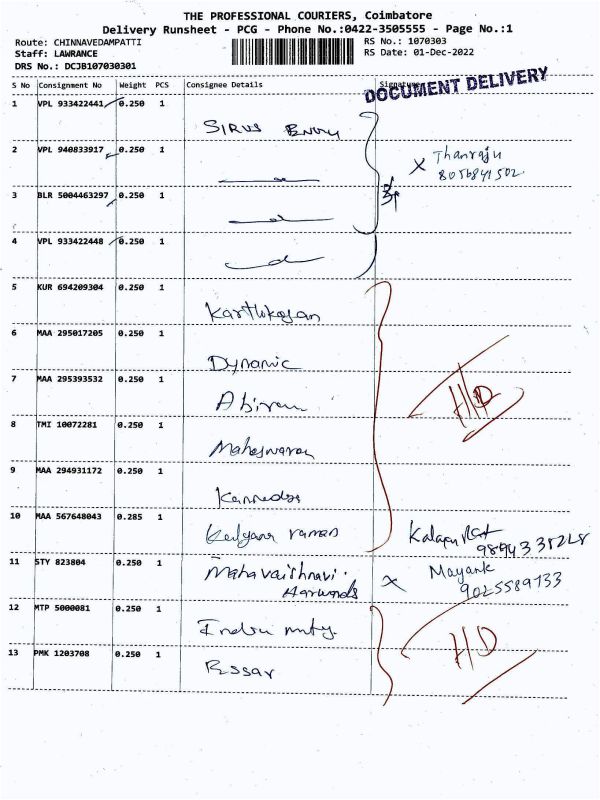 THE PROFESSIONAL COURIERS, Coimbatore
Delivery Runsheet - PCG - Phone No.:0422-3505555 - Page No.:1
Route: CHINNAVEDAMPATTI RS No.: 1070303
Staff: LAWRANCE RS Date: 01-Dec-2022
DRS No.: DCJB107030301
DOCUMENT DELIVERY
S No Consignment No Weight PCS Consignee Details Signature
1 VPL 933422441 0.250 1
2 VPL 940833917 0.250 1 X Thanraju
8056841502
3 BLR 5004463297 0.250 1
4 VPL 933422448 0.250 1
5 KUR 694209304 0.250 1
6 MAA 295017205 0.250 1 Dynamic
7 MAA 295393532 0.250 1 H/D
8 TMI 10072281 0.250 1 Maheswaran
9 MAA 294931172 0.250 1
10 MAA 567648043 0.285 1 Kalyana raman
11 STY 823804 0.250 1 Mahavaishnavi X Mayank
9025589133
12 MTP 5000081 0.250 1 H/D
13 PMK 1203708 0.250 1 Essar